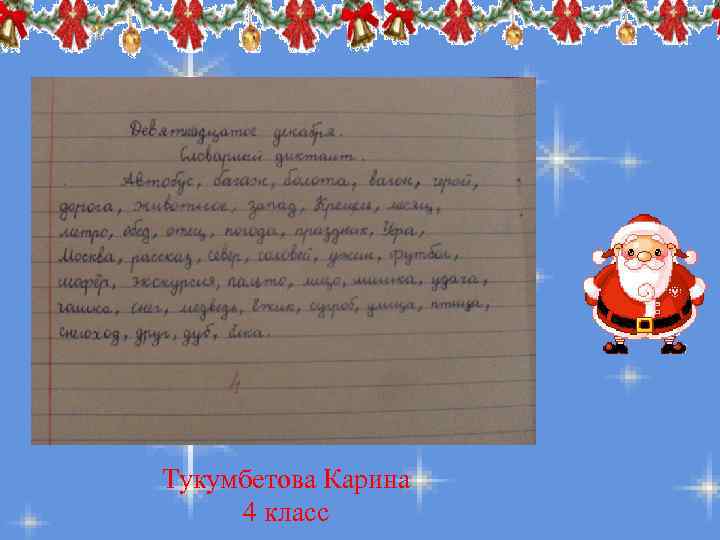 Девятнадцатое декабря.
Словарный диктант.
Автобус, багаж, болота, вагон, герой,
дорога, животное, запад, Кремль, месяц,
метро, обед, отец, погода, праздник,
Москва, рассказ, север, соловей, ужин, футбол,
шофёр, экскурсия, пальто, лицо, мишка, удача,
снег, медведь, ёжик, сугроб, улица, птица,
снегоход, друг, дуб, ёлка.
4
Тукумбетова Карина
4 класс